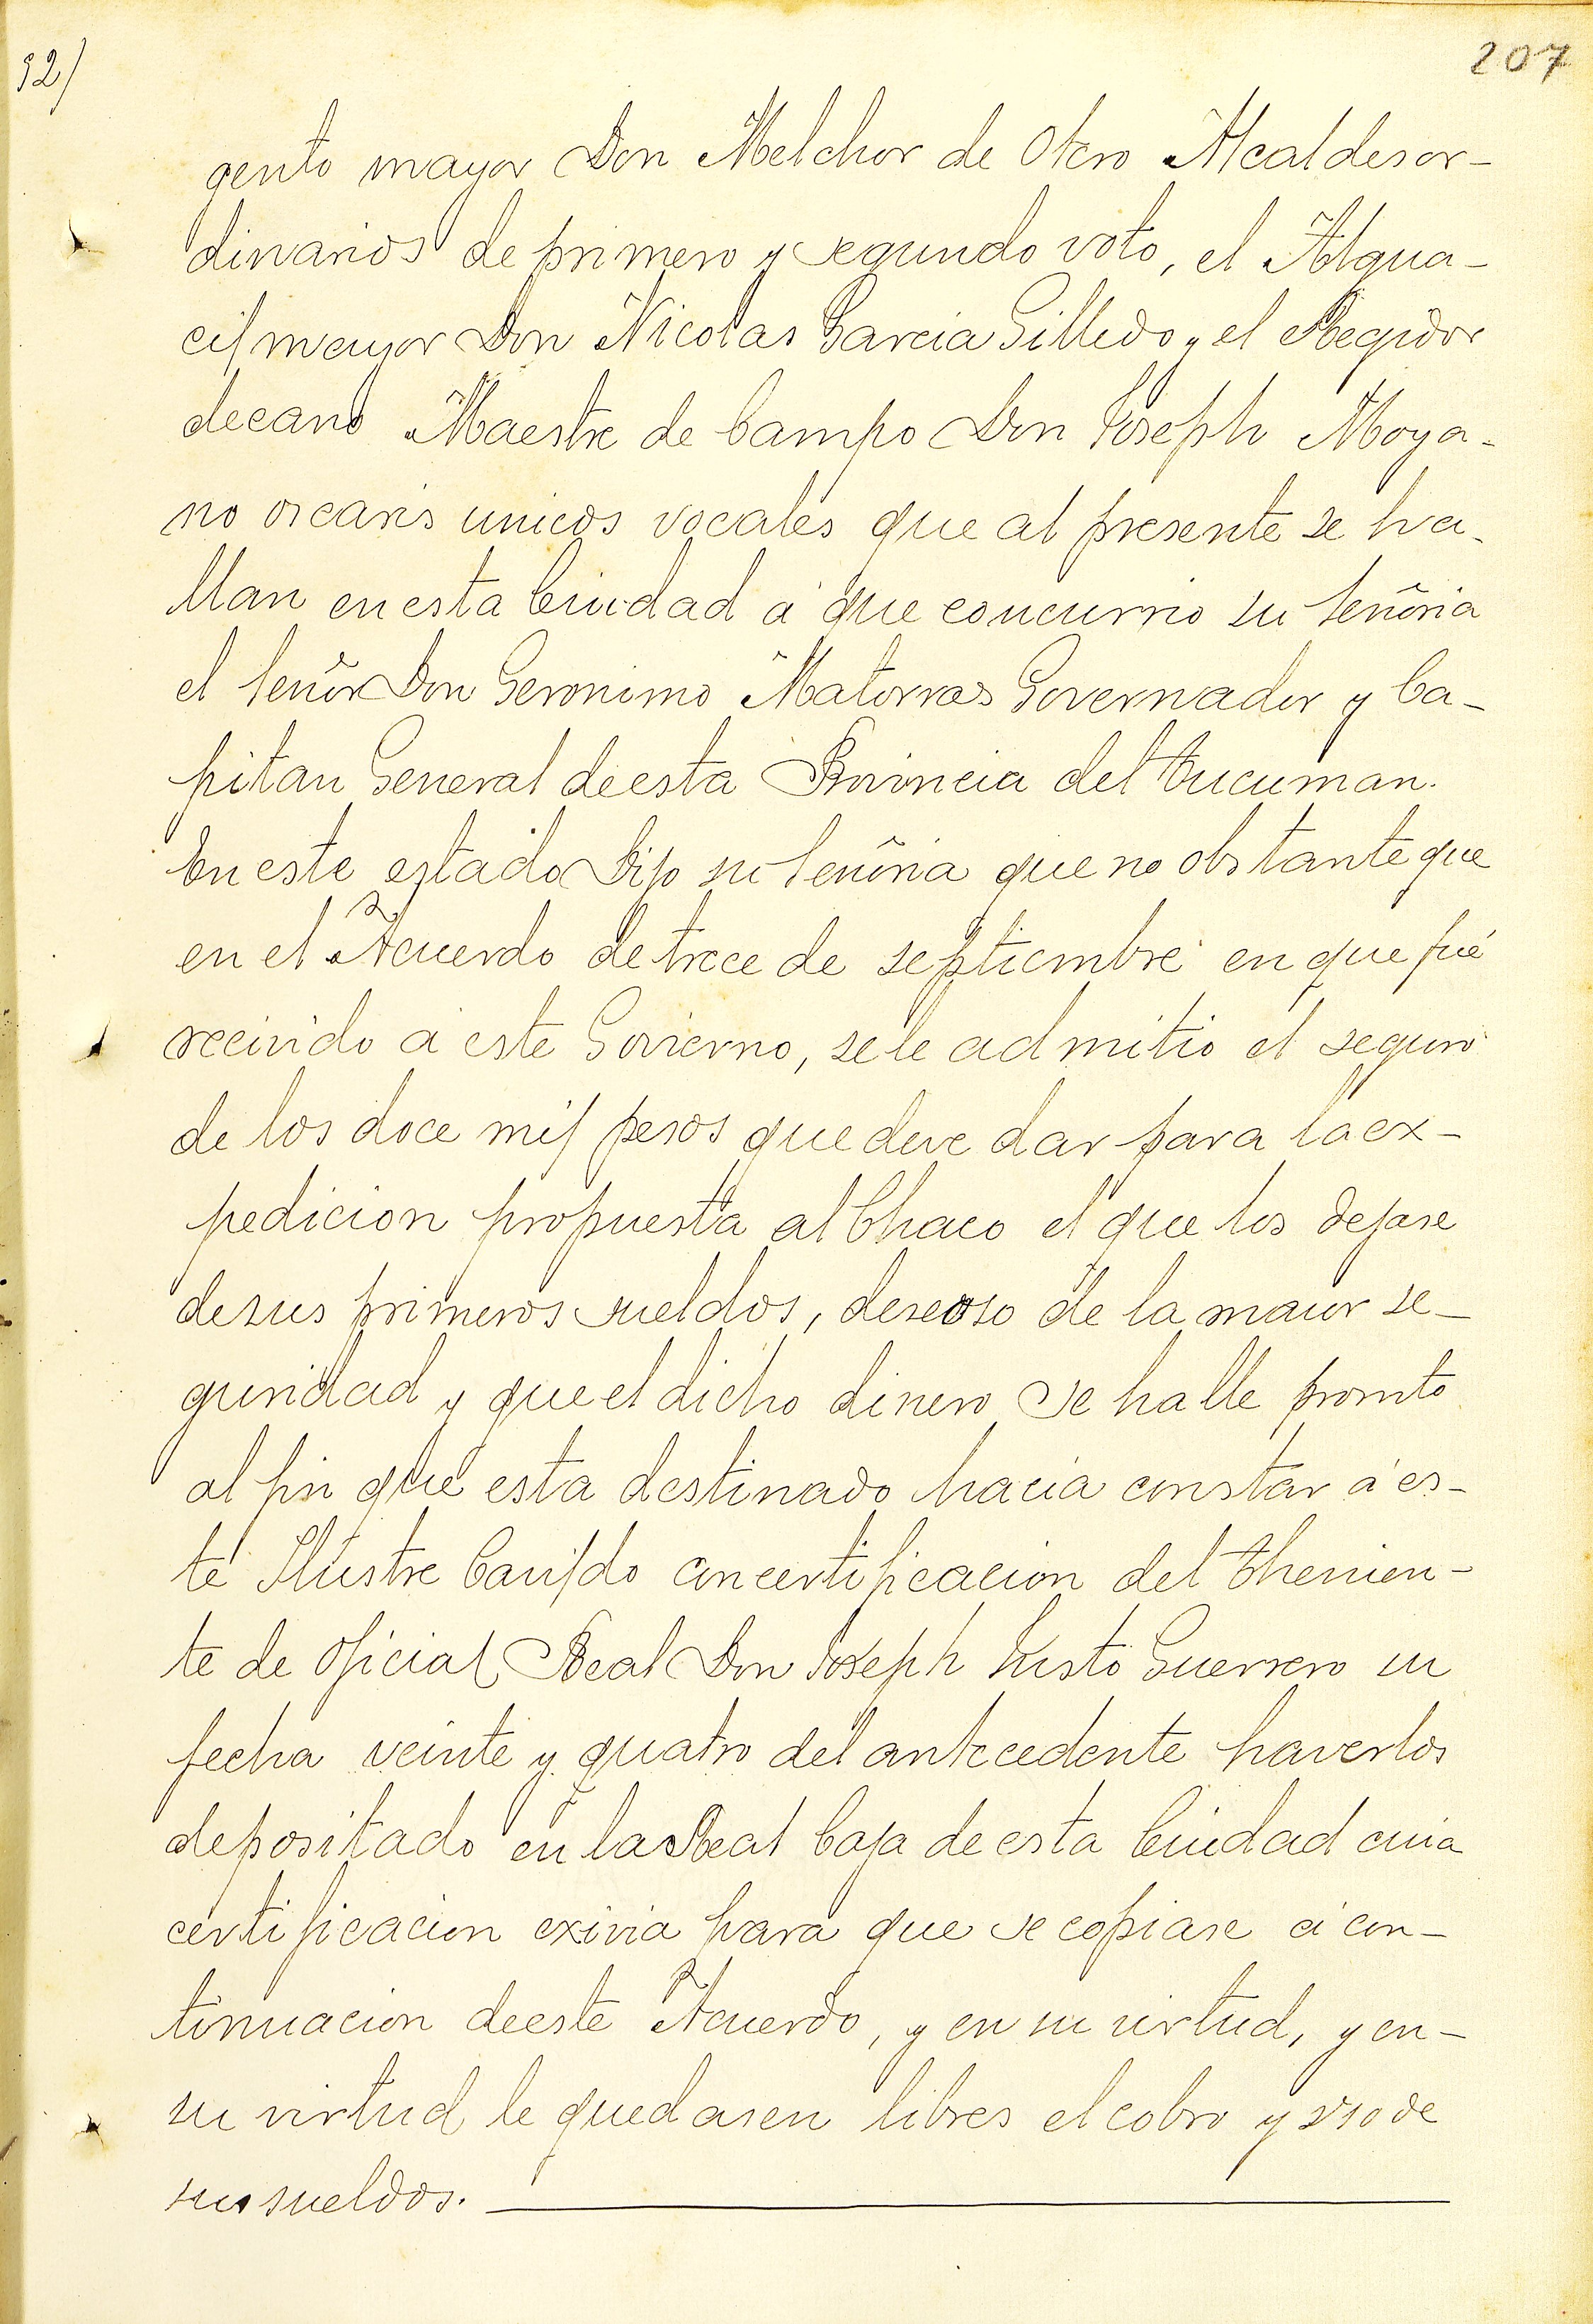 92/
207
gento mayor Don Melchor de Otero Alcaldes or-
dinarios de primero y segundo voto, el Algua-
cil mayor Don Nicolas Garcia Gilledo y el Regidor
decano Maestre de Campo Don Joseph Moya-
no oscaris unicos vocales que al presente se ha-
llan en esta Ciudad á que concurrio su señoria
el señor Don Geronimo Matorras Governador y Ca-
pitan General de esta Provincia del Tucuman.
En este estado Dijo su señoria que no obstante que
en el Acuerdo de trece de septiembre en que fué
recivido a este Govierno, se le admitio el seguro
de los doce mil pesos que deve dar para la ex-
pedicion propuesta al Chaco el que los dejase
de sus primeros sueldos, deseoso de la maior se-
guridad y que el dicho dinero se halle promto
al fin que esta destinado hacia constar á es-
te Ilustre Cavildo con certificacion del Thenien-
te de oficial Real Don Joseph Justo Guerrero su
fecha veinte y quatro del antecedente haverlos
depositado en la Real Caja de esta Ciudad cuia
certificacion exivia para que se copiase á con-
tinuacion de este Acuerdo, y en su virtud, y en-
su virtud le quedasen libres el cobro y uso de
sus sueldos.